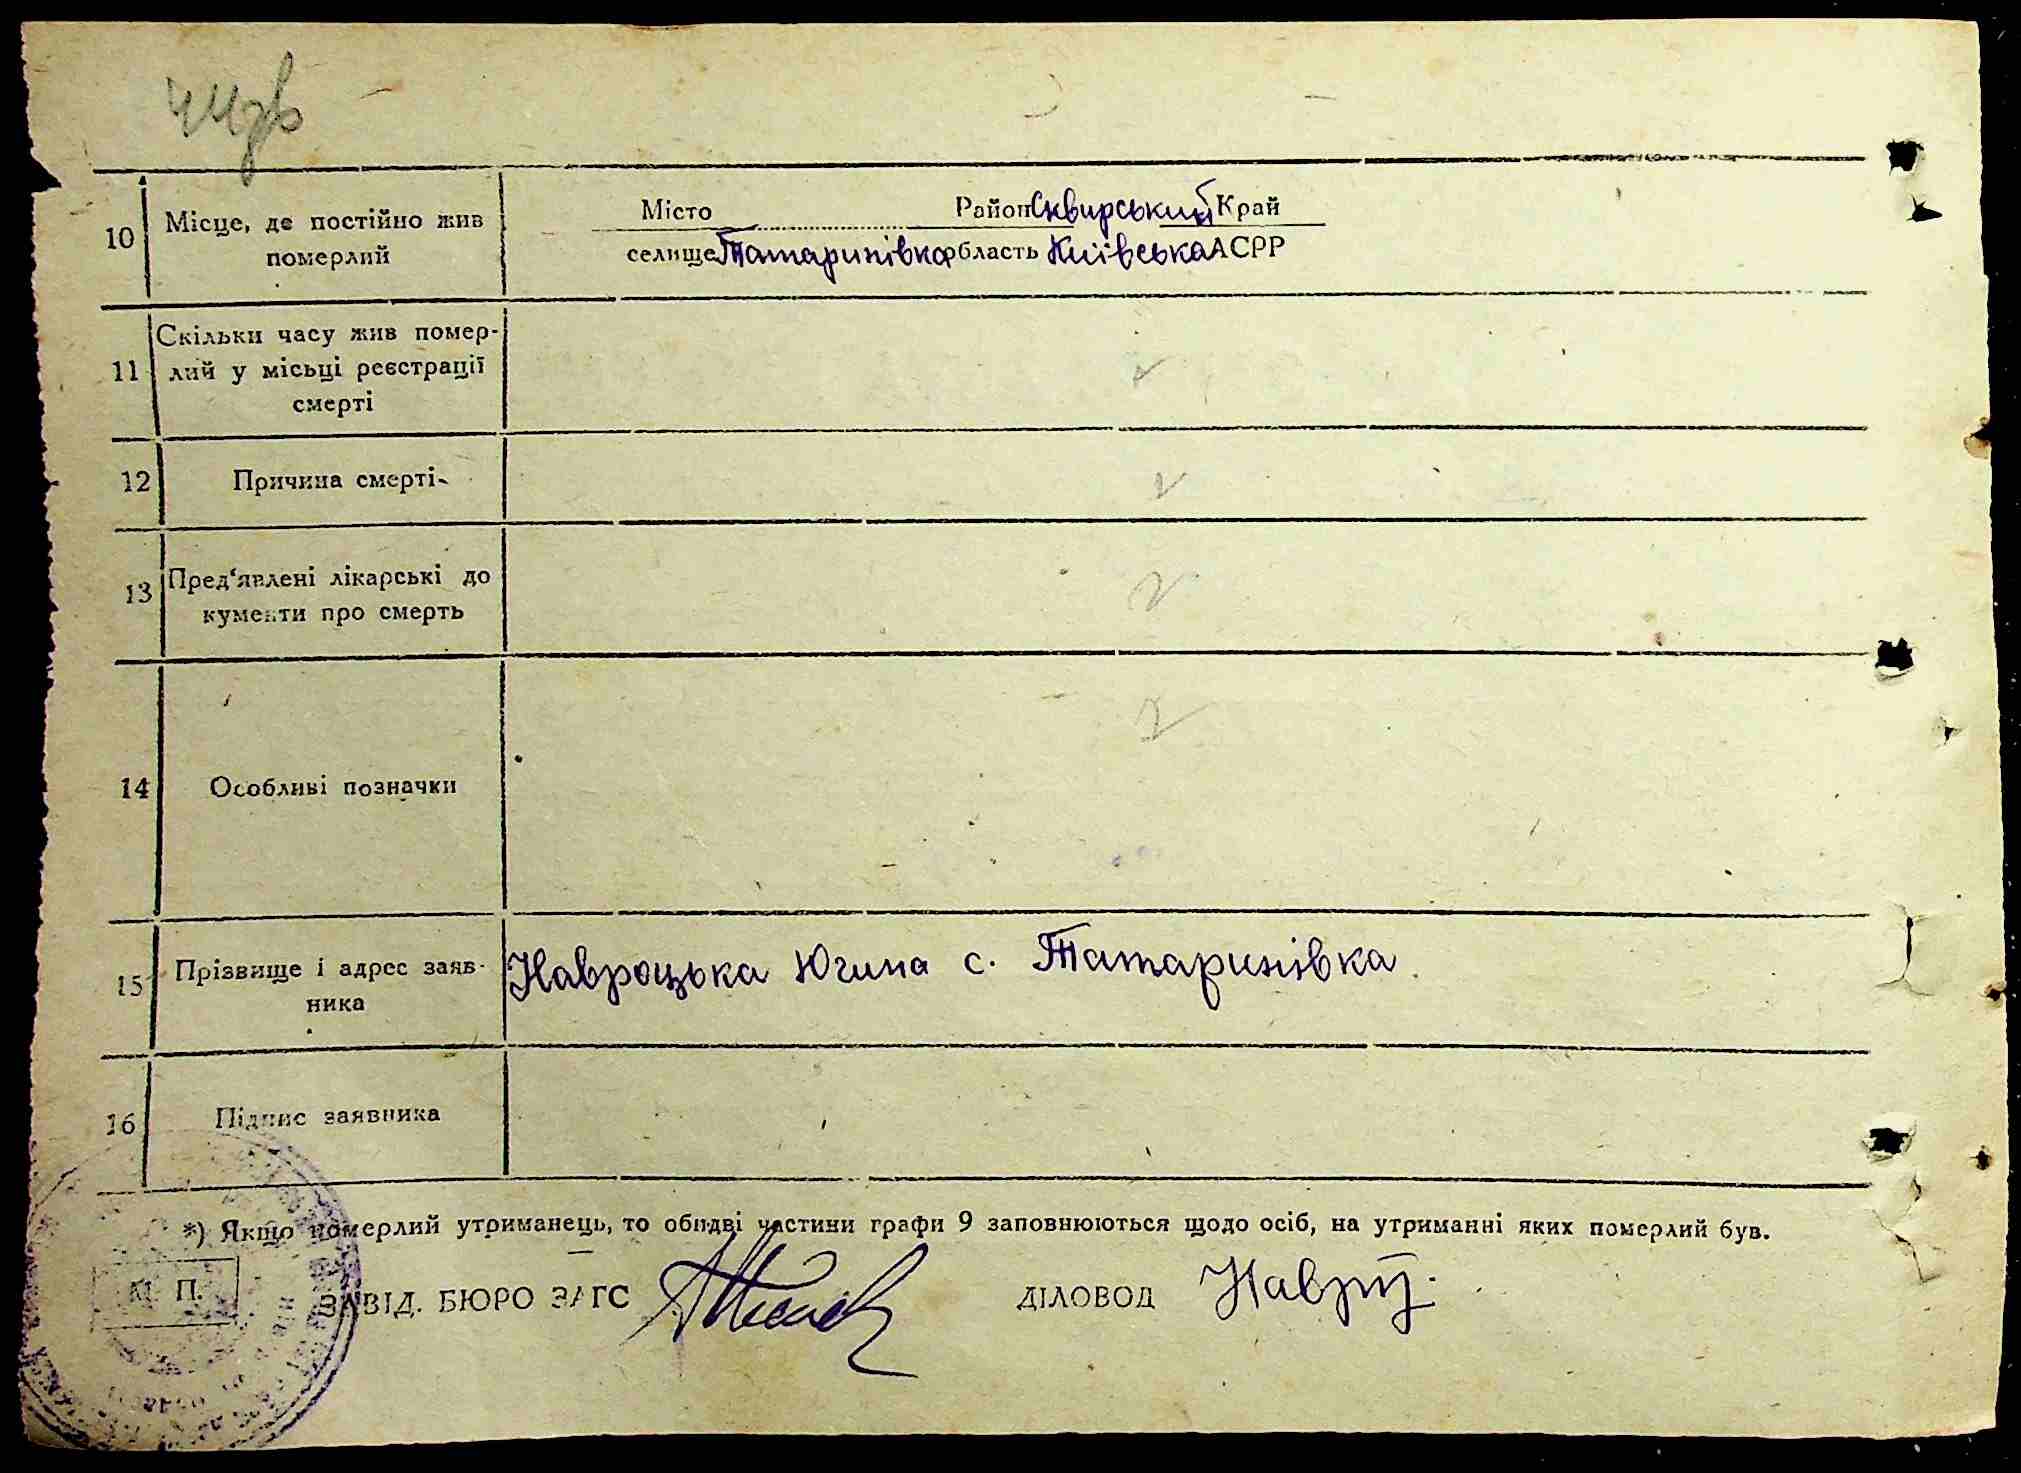 10
Місце, де постійно жив
померлий
Місто Район Сквирський Край
селище Татаринівка область Київська АСРР
11
Скільки часу жив помер-
лий у місьці реєстрації
смерті
12
Причина смерті
13
Пред‘явлені лікарські до
кументи про смерть
14
Особливі позначки
15
Прізвище і адрес заяв-
ника
Навроцька Югина с. Татаринівка
16
Підпис заявника
*) Якщо померлий утриманець, то обидві частини графи 9 заповнюються щодо осіб, на утриманні яких померлий був.
М. П.
ЗАВІД. БЮРО ЗАГС
ДІЛОВОД